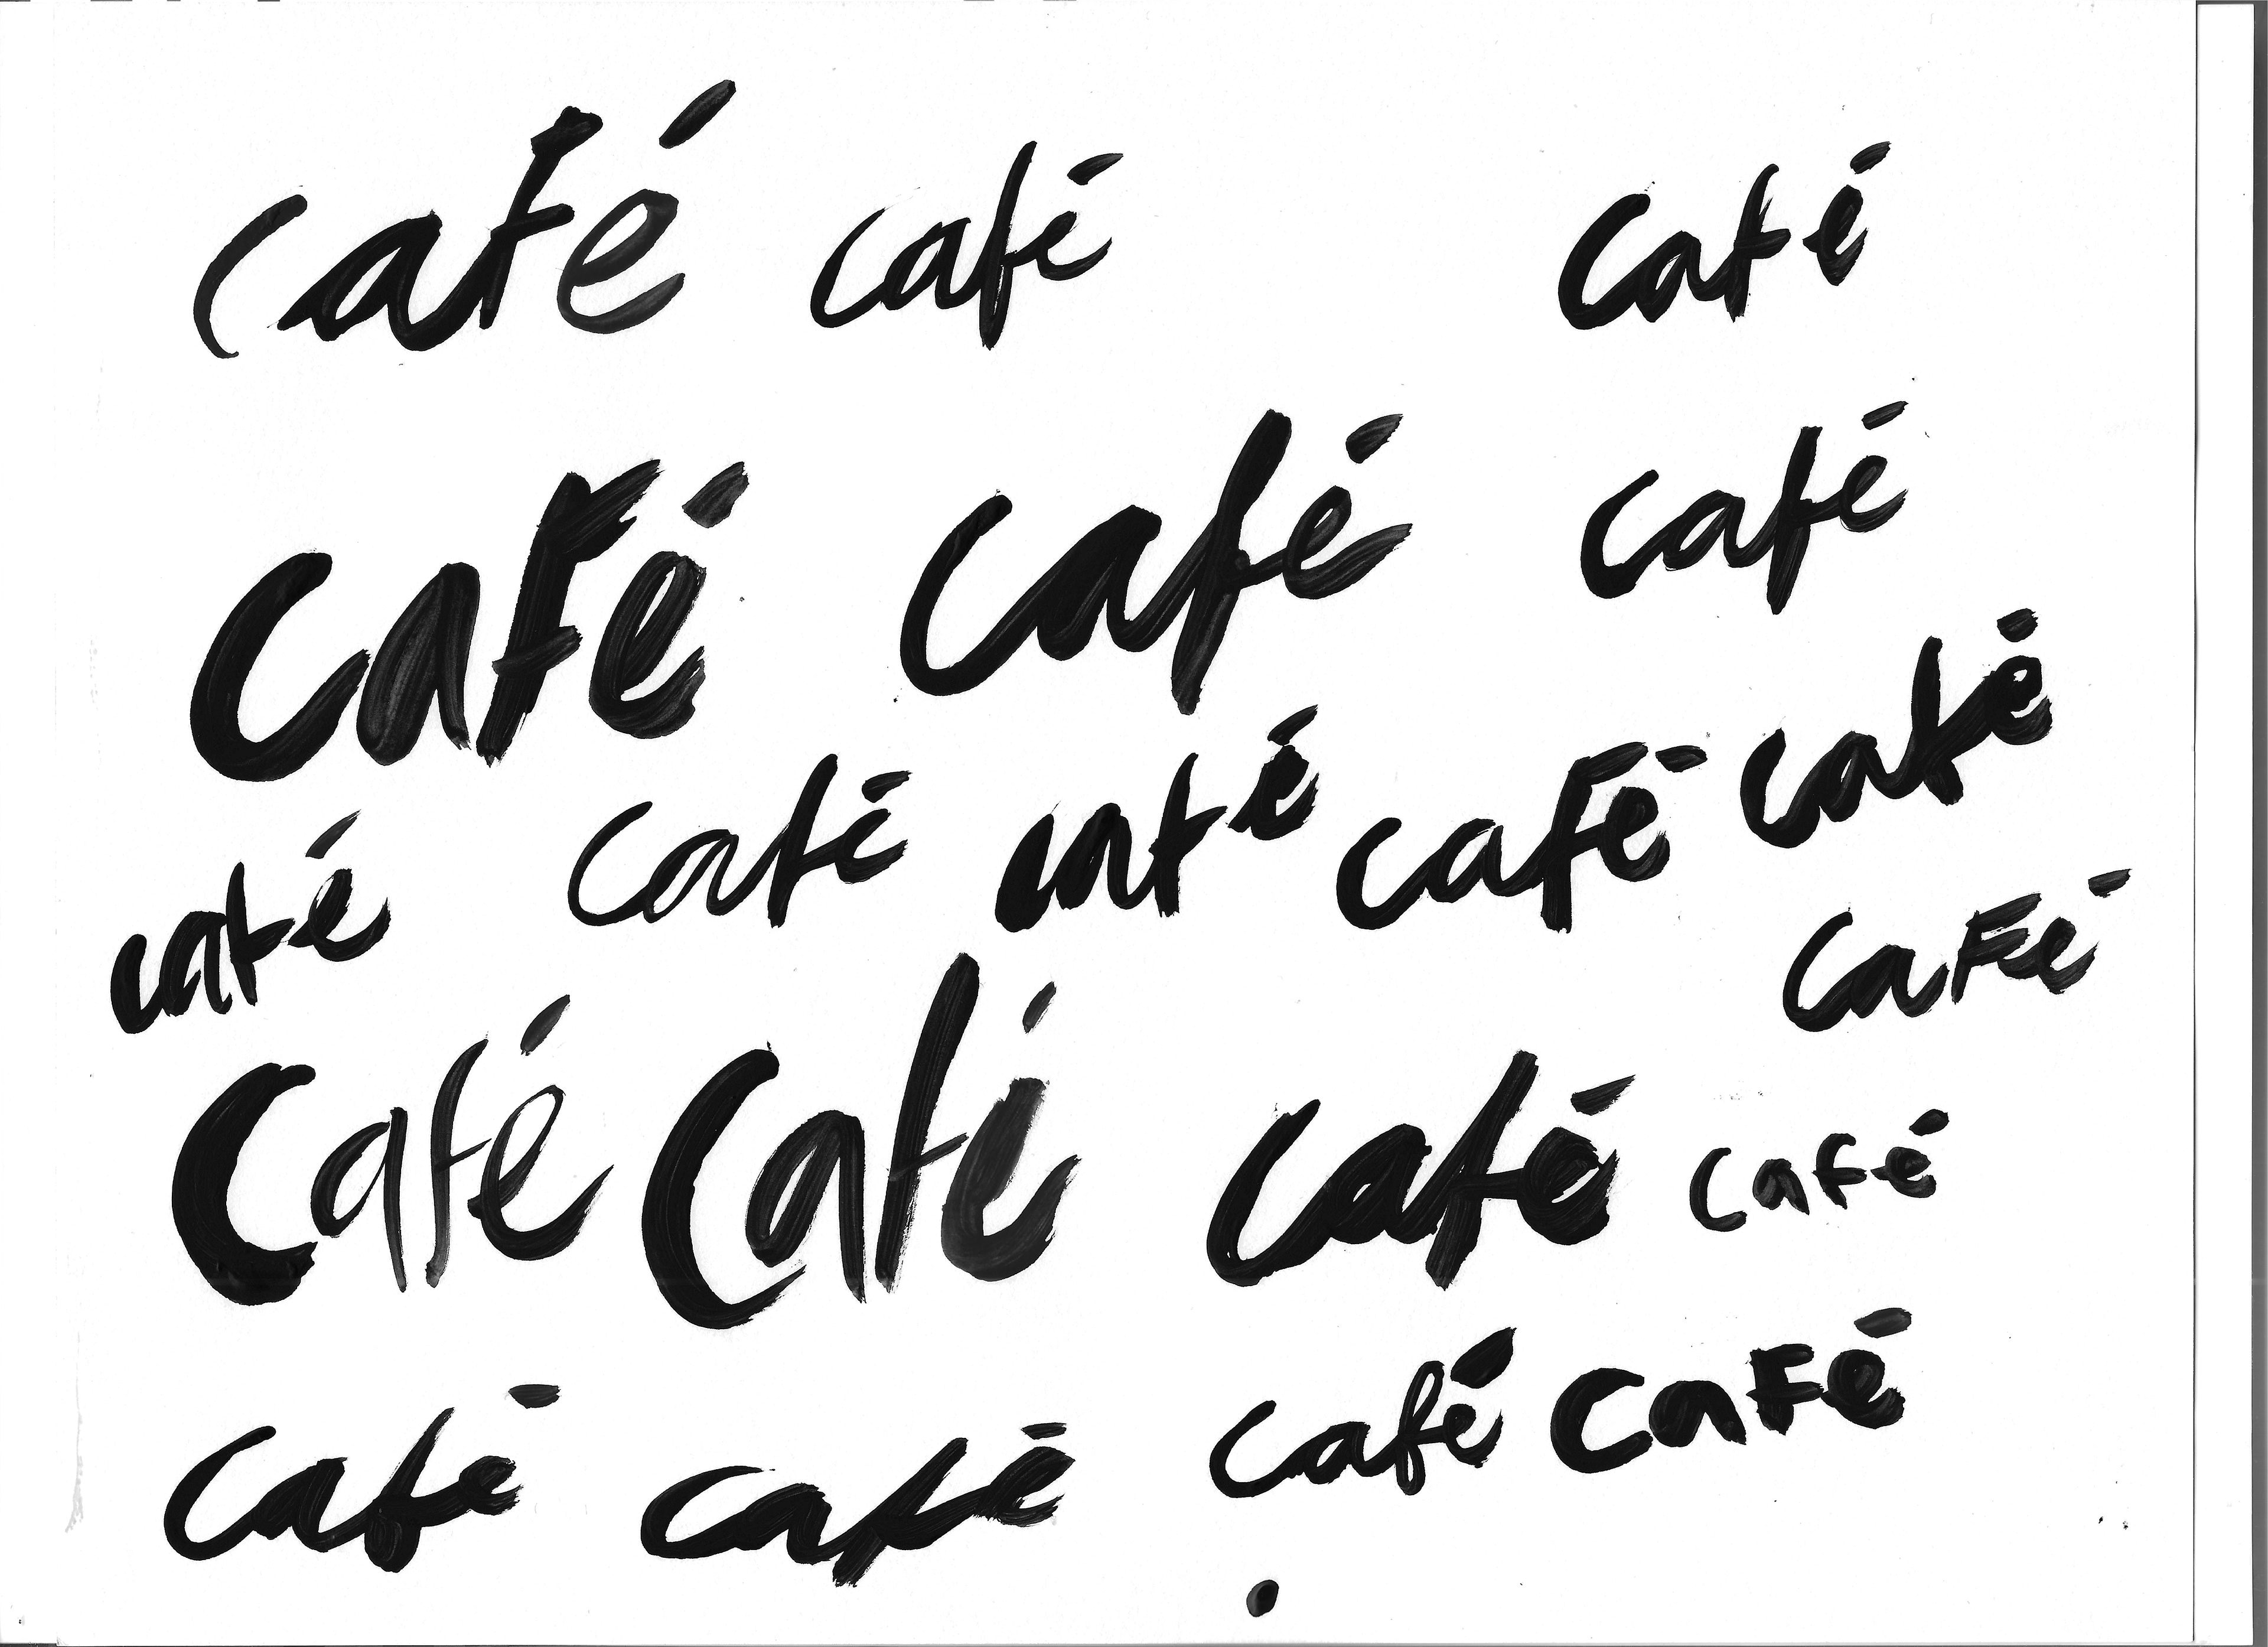 Café café Café
Café café café
café café café café café
café café
Café Café café café
café café café café